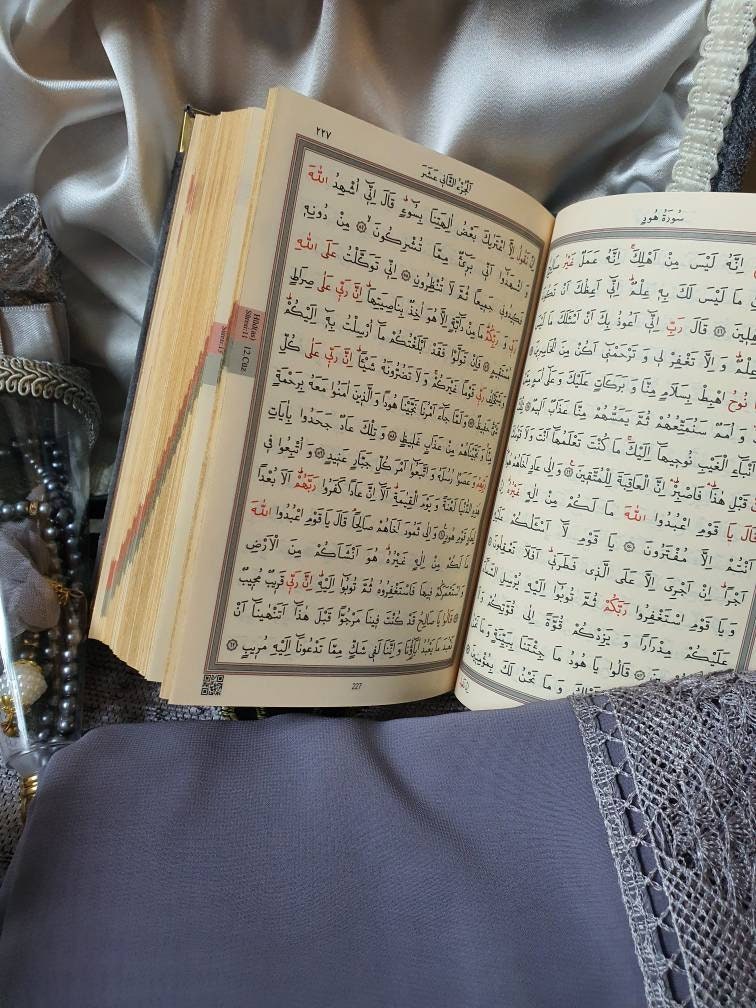 سُورَةُ هُودٍ
اِنَّهُ لَيْسَ مِنْ اَهْلِكَ اِنَّهُ عَمَلٌ غَيْرُ
مَا لَيْسَ لَكَ بِهِ عِلْمٌ اِنِّي اَعِظُكَ اَنْ
قَالَ رَبِّ اِنِّي اَعُوذُ بِكَ اَنْ اَسْـَٔلَكَ مَا لَيْسَ
عِلْمٌ وَاِلَّا تَغْفِرْ لِي وَتَرْحَمْنِي اَكُنْ مِنَ الْخَاسِرِينَ
نُوحُ اهْبِطْ بِسَلَامٍ مِنَّا وَبَرَكَاتٍ عَلَيْكَ وَعَلٰى اُمَمٍ
وَاُمَمٌ سَنُمَتِّعُهُمْ ثُمَّ يَمَسُّهُمْ مِنَّا عَذَابٌ اَلِيمٌ
الْغَيْبِ نُوحِيهَا اِلَيْكَ مَا كُنْتَ تَعْلَمُهَا اَنْتَ وَلَا
قَبْلِ هٰذَا فَاصْبِرْ اِنَّ الْعَاقِبَةَ لِلْمُتَّقِينَ ٤٩ وَاِلٰى عَادٍ اَخَاهُمْ
قَالَ يَا قَوْمِ اعْبُدُوا اللّٰهَ مَا لَكُمْ مِنْ اِلٰهٍ غَيْرُهُ
اَنْتُمْ اِلَّا مُفْتَرُونَ ٥٠ يَا قَوْمِ لَا اَسْـَٔلُكُمْ عَلَيْهِ
اَجْرًا اِنْ اَجْرِيَ اِلَّا عَلَى الَّذِي فَطَرَنِي اَفَلَا تَعْقِلُونَ
وَيَا قَوْمِ اسْتَغْفِرُوا رَبَّكُمْ ثُمَّ تُوبُوا اِلَيْهِ يُرْسِلِ
عَلَيْكُمْ مِدْرَارًا وَيَزِدْكُمْ قُوَّةً اِلٰى قُوَّتِكُمْ
قَالُوا يَا هُودُ مَا جِئْتَنَا بِبَيِّنَةٍ وَمَا
وَمَا نَحْنُ لَكَ بِمُؤْمِنِينَ
٢٢٧
اَلْجُزْءُ الثَّانِي عَشَرَ
اِنْ نَقُولُ اِلَّا اعْتَرٰيكَ بَعْضُ اٰلِهَتِنَا بِسُوءٍ قَالَ اِنِّي اُشْهِدُ اللّٰهَ
وَاشْهَدُوا اَنِّي بَرِيءٌ مِمَّا تُشْرِكُونَ ٥٤ مِنْ دُونِهِ
فَكِيدُونِي جَمِيعًا ثُمَّ لَا تُنْظِرُونِ ٥٥ اِنِّي تَوَكَّلْتُ عَلَى اللّٰهِ
رَبِّي وَرَبِّكُمْ مَا مِنْ دَابَّةٍ اِلَّا هُوَ اٰخِذٌ بِنَاصِيَتِهَا اِنَّ رَبِّي عَلٰى صِرَاطٍ
مُسْتَقِيمٍ ٥٦ فَاِنْ تَوَلَّوْا فَقَدْ اَبْلَغْتُكُمْ مَا اُرْسِلْتُ بِهِ اِلَيْكُمْ
وَيَسْتَخْلِفُ رَبِّي قَوْمًا غَيْرَكُمْ وَلَا تَضُرُّونَهُ شَيْـًٔا اِنَّ رَبِّي عَلٰى كُلِّ
شَيْءٍ حَفِيظٌ ٥٧ وَلَمَّا جَاءَ اَمْرُنَا نَجَّيْنَا هُودًا وَالَّذِينَ اٰمَنُوا مَعَهُ بِرَحْمَةٍ
مِنَّا وَنَجَّيْنَاهُمْ مِنْ عَذَابٍ غَلِيظٍ ٥٨ وَتِلْكَ عَادٌ جَحَدُوا بِاٰيَاتِ
رَبِّهِمْ وَعَصَوْا رُسُلَهُ وَاتَّبَعُوا اَمْرَ كُلِّ جَبَّارٍ عَنِيدٍ ٥٩ وَاُتْبِعُوا فِي
هٰذِهِ الدُّنْيَا لَعْنَةً وَيَوْمَ الْقِيٰمَةِ اَلَا اِنَّ عَادًا كَفَرُوا رَبَّهُمْ اَلَا بُعْدًا
لِعَادٍ قَوْمِ هُودٍ ٦٠ وَاِلٰى ثَمُودَ اَخَاهُمْ صَالِحًا قَالَ يَا قَوْمِ اعْبُدُوا اللّٰهَ
مَا لَكُمْ مِنْ اِلٰهٍ غَيْرُهُ هُوَ اَنْشَاَكُمْ مِنَ الْاَرْضِ
وَاسْتَعْمَرَكُمْ فِيهَا فَاسْتَغْفِرُوهُ ثُمَّ تُوبُوا اِلَيْهِ اِنَّ رَبِّي قَرِيبٌ مُجِيبٌ
٦١ قَالُوا يَا صَالِحُ قَدْ كُنْتَ فِينَا مَرْجُوًّا قَبْلَ هٰذَا اَتَنْهٰينَا اَنْ
نَعْبُدَ مَا يَعْبُدُ اٰبَاؤُنَا وَاِنَّنَا لَفِي شَكٍّ مِمَّا تَدْعُونَا اِلَيْهِ مُرِيبٍ ٦٢
227
Hûd(as)
Sûresi:11
12.Cüz